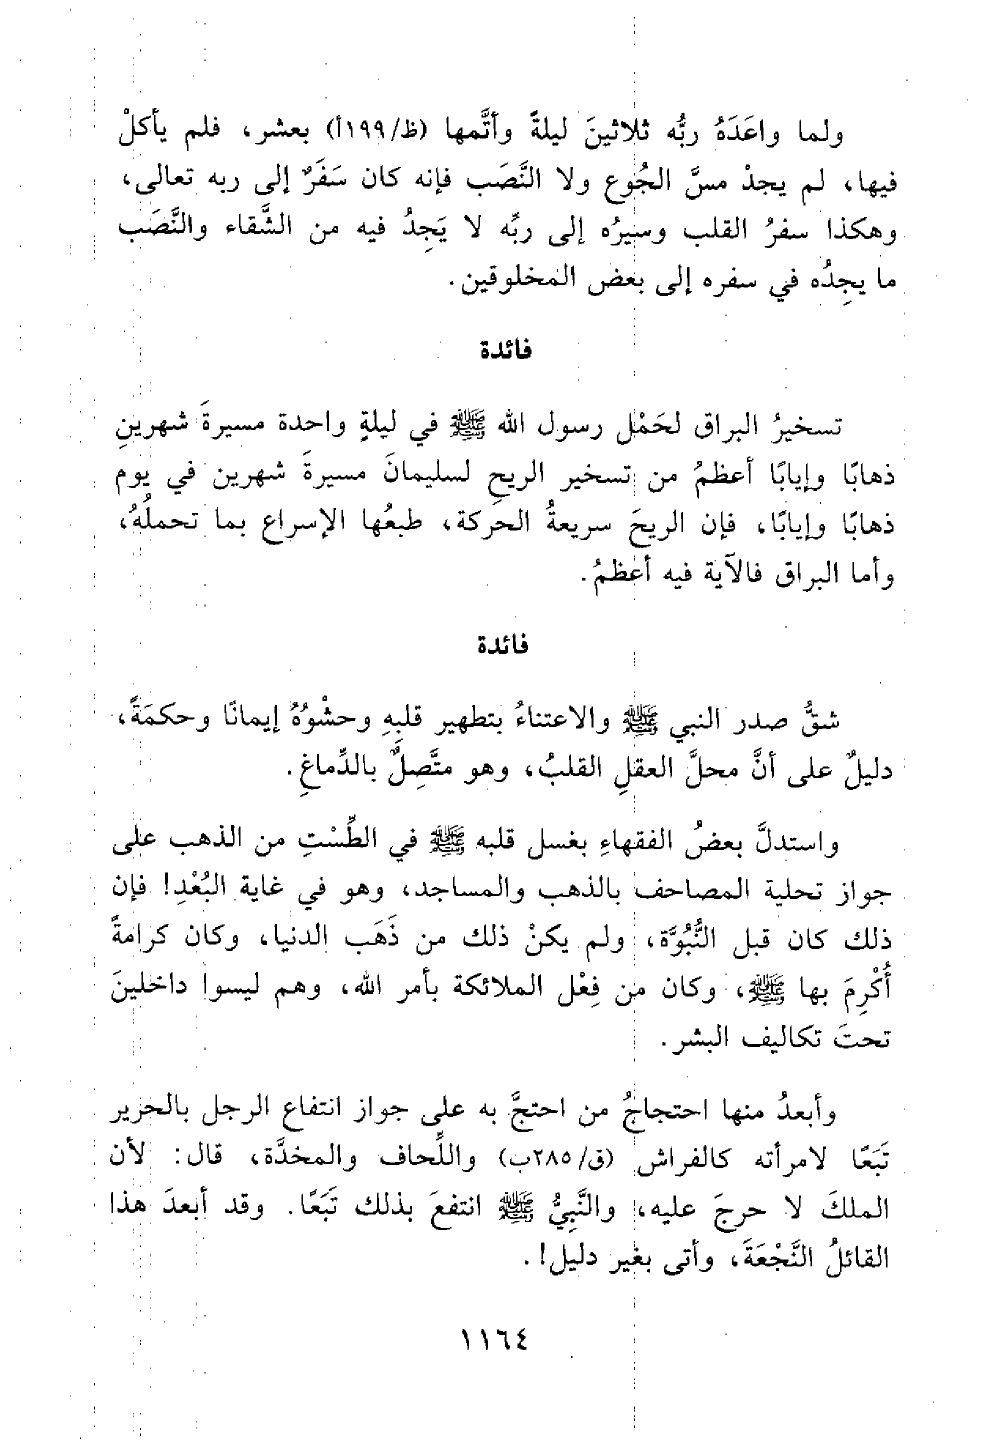 ولما واعَدَهُ ربُّه ثلاثينَ ليلةً وأتَّمها (ظ/١٩٩أ) بعشر، فلم يأكلْ
فيها، لم يجدْ مسَّ الجُوع ولا النَّصَب فإنه كان سَفَرٌ إلى ربه تعالى،
وهكذا سفرُ القلب وسيرُه إلى ربِّه لا يَجِدُ فيه من الشَّقاء والنَّصَب
ما يجِدُه في سفره إلى بعض المخلوقين.
فائدة
تسخيرُ البراق لحَمْل رسول الله ﷺ في ليلةٍ واحدة مسيرةَ شهرينِ
ذهابًا وإيابًا أعظمُ من تسخير الريحِ لسليمانَ مسيرةَ شهرين في يوم
ذهابًا وإيابًا، فإن الريحَ سريعةُ الحركة، طبعُها الإسراع بما تحملُهُ،
وأما البراق فالآية فيه أعظمُ.
فائدة
شقُّ صدر النبي ﷺ والاعتناءُ بتطهير قلبِهِ وحشْوُهُ إيمانًا وحكمَةً،
دليلٌ على أنَّ محلَّ العقلِ القلبُ، وهو متَّصِلٌ بالدِّماغِ.
واستدلَّ بعضُ الفقهاءِ بغسل قلبه ﷺ في الطِّسْتِ من الذهب على
جواز تحلية المصاحف بالذهب والمساجد، وهو في غاية البُعْدِ! فإن
ذلك كان قبل النُّبُوَّة، ولم يكنْ ذلك من ذَهَب الدنيا، وكان كرامةً
أُكْرِمَ بها ﷺ، وكان من فِعْل الملائكة بأمر الله، وهم ليسوا داخلينَ
تحتَ تكاليف البشر.
وأبعدُ منها احتجاجُ من احتجَّ به على جواز انتفاع الرجل بالحرير
تَبَعًا لامرأته كالفراش (ق/٢٨٥ب) واللِّحاف والمخدَّة، قال: لأن
الملكَ لا حرجَ عليه، والنَّبِيُّ ﷺ انتفعَ بذلك تَبَعًا. وقد أبعدَ هذا
القائلُ النَّجْعَةَ، وأتى بغير دليل!.
١١٦٤